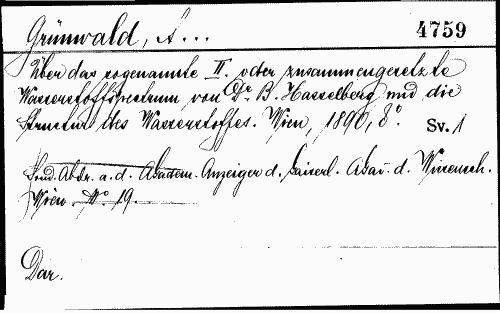 Grünwald, A...
4759
Über das sogenannte II. oder zusammengesetzte
Wasserstoffspectrum von Dr B. Hasselberg und die
Structur des Wasserstoffes. Wien, 1890, 8°. Sv. 1
Sond. Abdr. a. d. Akadem. Anzeiger d. kaiserl. Akad. d. Wissensch.
Wien. No 19.
Dar.